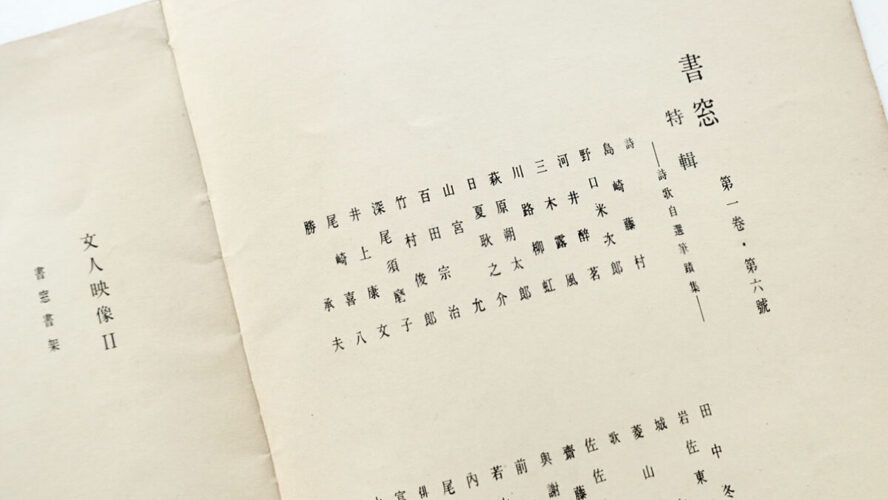 書窓
第一巻・第六號
特輯
―詩歌自選筆蹟集―
詩
島崎藤村
野口米次郎
河井醉茗
三木露風
川路柳虹
萩原朔太郎
日夏耿之介
山宮允
百田宗治
竹村俊郎
深尾須磨子
井上康文
尾崎喜八
勝承夫
田中冬
岩佐東
城
菱山
歌
佐佐
齋藤
與謝
前
若
內
尾
俳
文人映像II
書窓書架